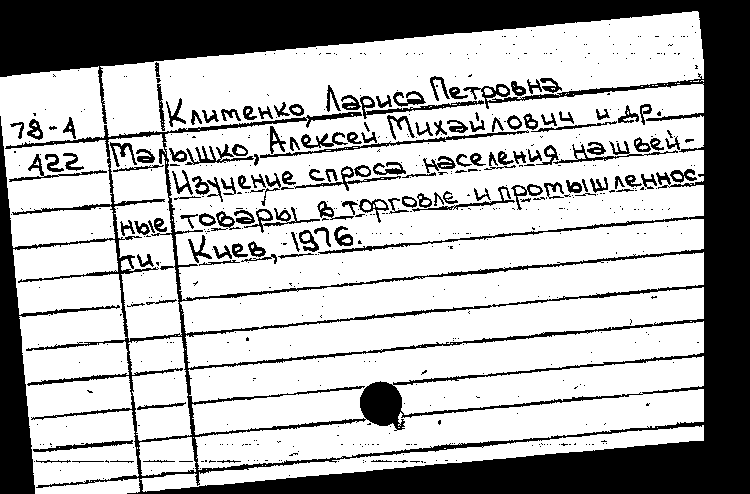 Клименко, Лариса Петровна
78-4
422 Малышко, Алексей Михайлович и др.
Изучение спроса населения на швей-
ные товары в торговле и промышленнос-
ти. Киев, 1976.